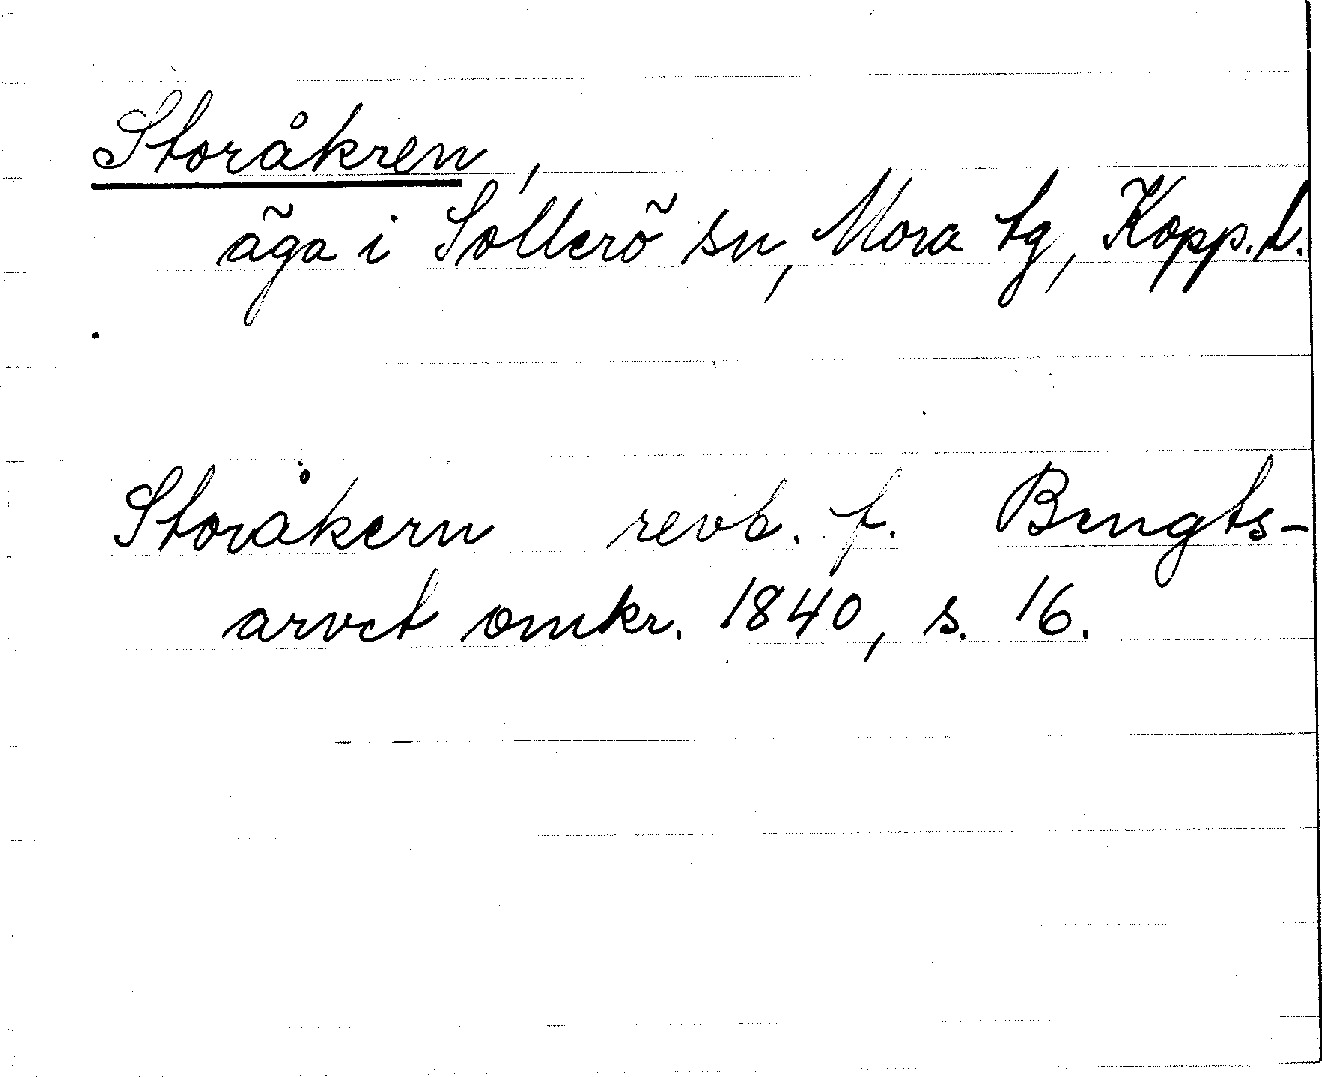 Storåkren,
äga i Sollerö sn, Mora tg, Kopp.l.
Storåkern revb. f. Bengts-
arvet omkr. 1840, s. 16.